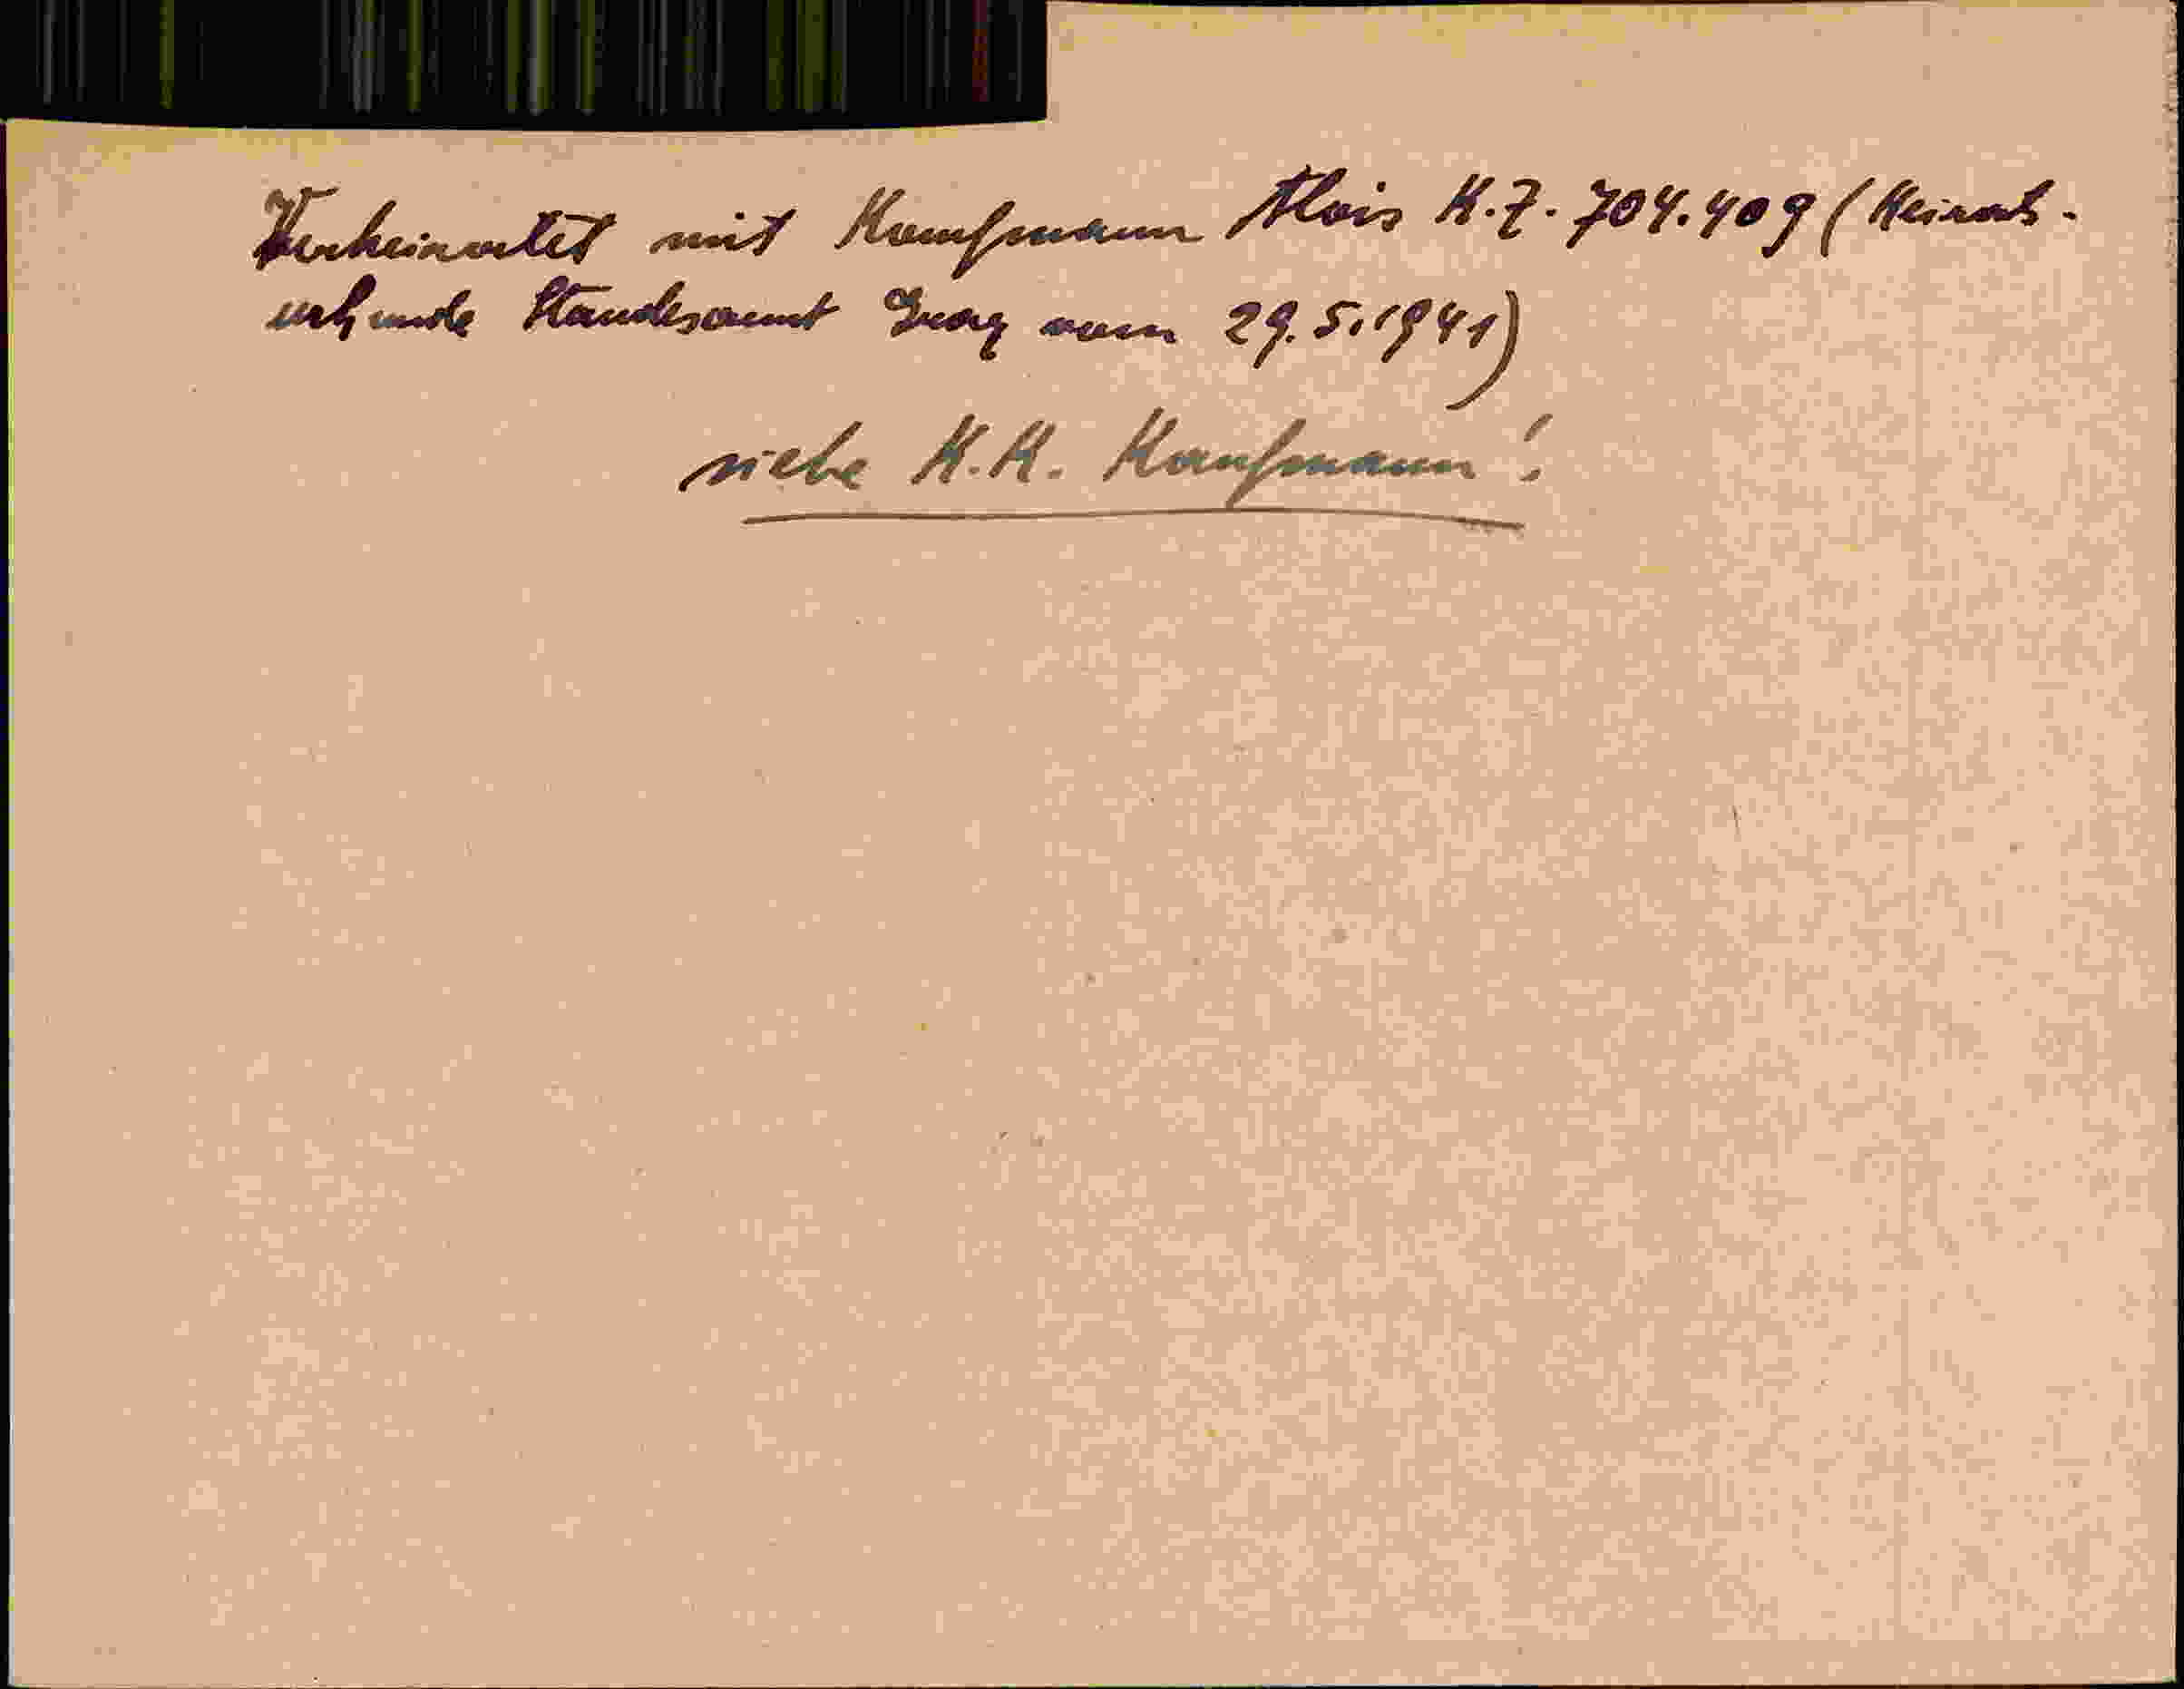 Verheiratet mit Kaufmann Alois K.Z. 704.409 (Heirats-
urkunde Standesamt Graz vom 29.5.1941)
siehe K.K. Kaufmann!